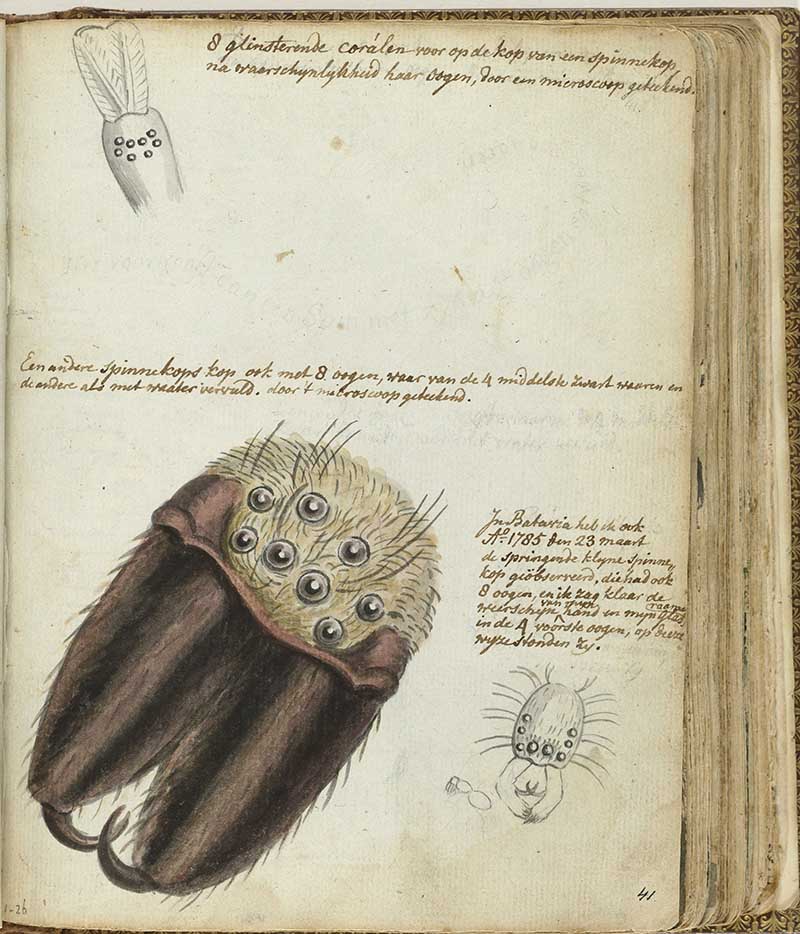 8 glinsterende corálen voor op de kop van een spinnekop,
na waarschynlykheid haar oogen, door een microscoop geteekend.
Een andere spinnekops kop ook met 8 oogen, waar van de 4 middelste zwart waaren en
de andere als met waater vervuld. door 't microscoop geteekend.
Jn Batavia heb ik ook
A° 1785 den 23 maart
de springende klyne spinne„
kop geöbserveerd, die had ook
8 oogen, en ik zag klaar de
weerschyn van myn hand en mijn glas raame
in de 4 voorste oogen, op deeze
wyze stonden zy.
41
1-26